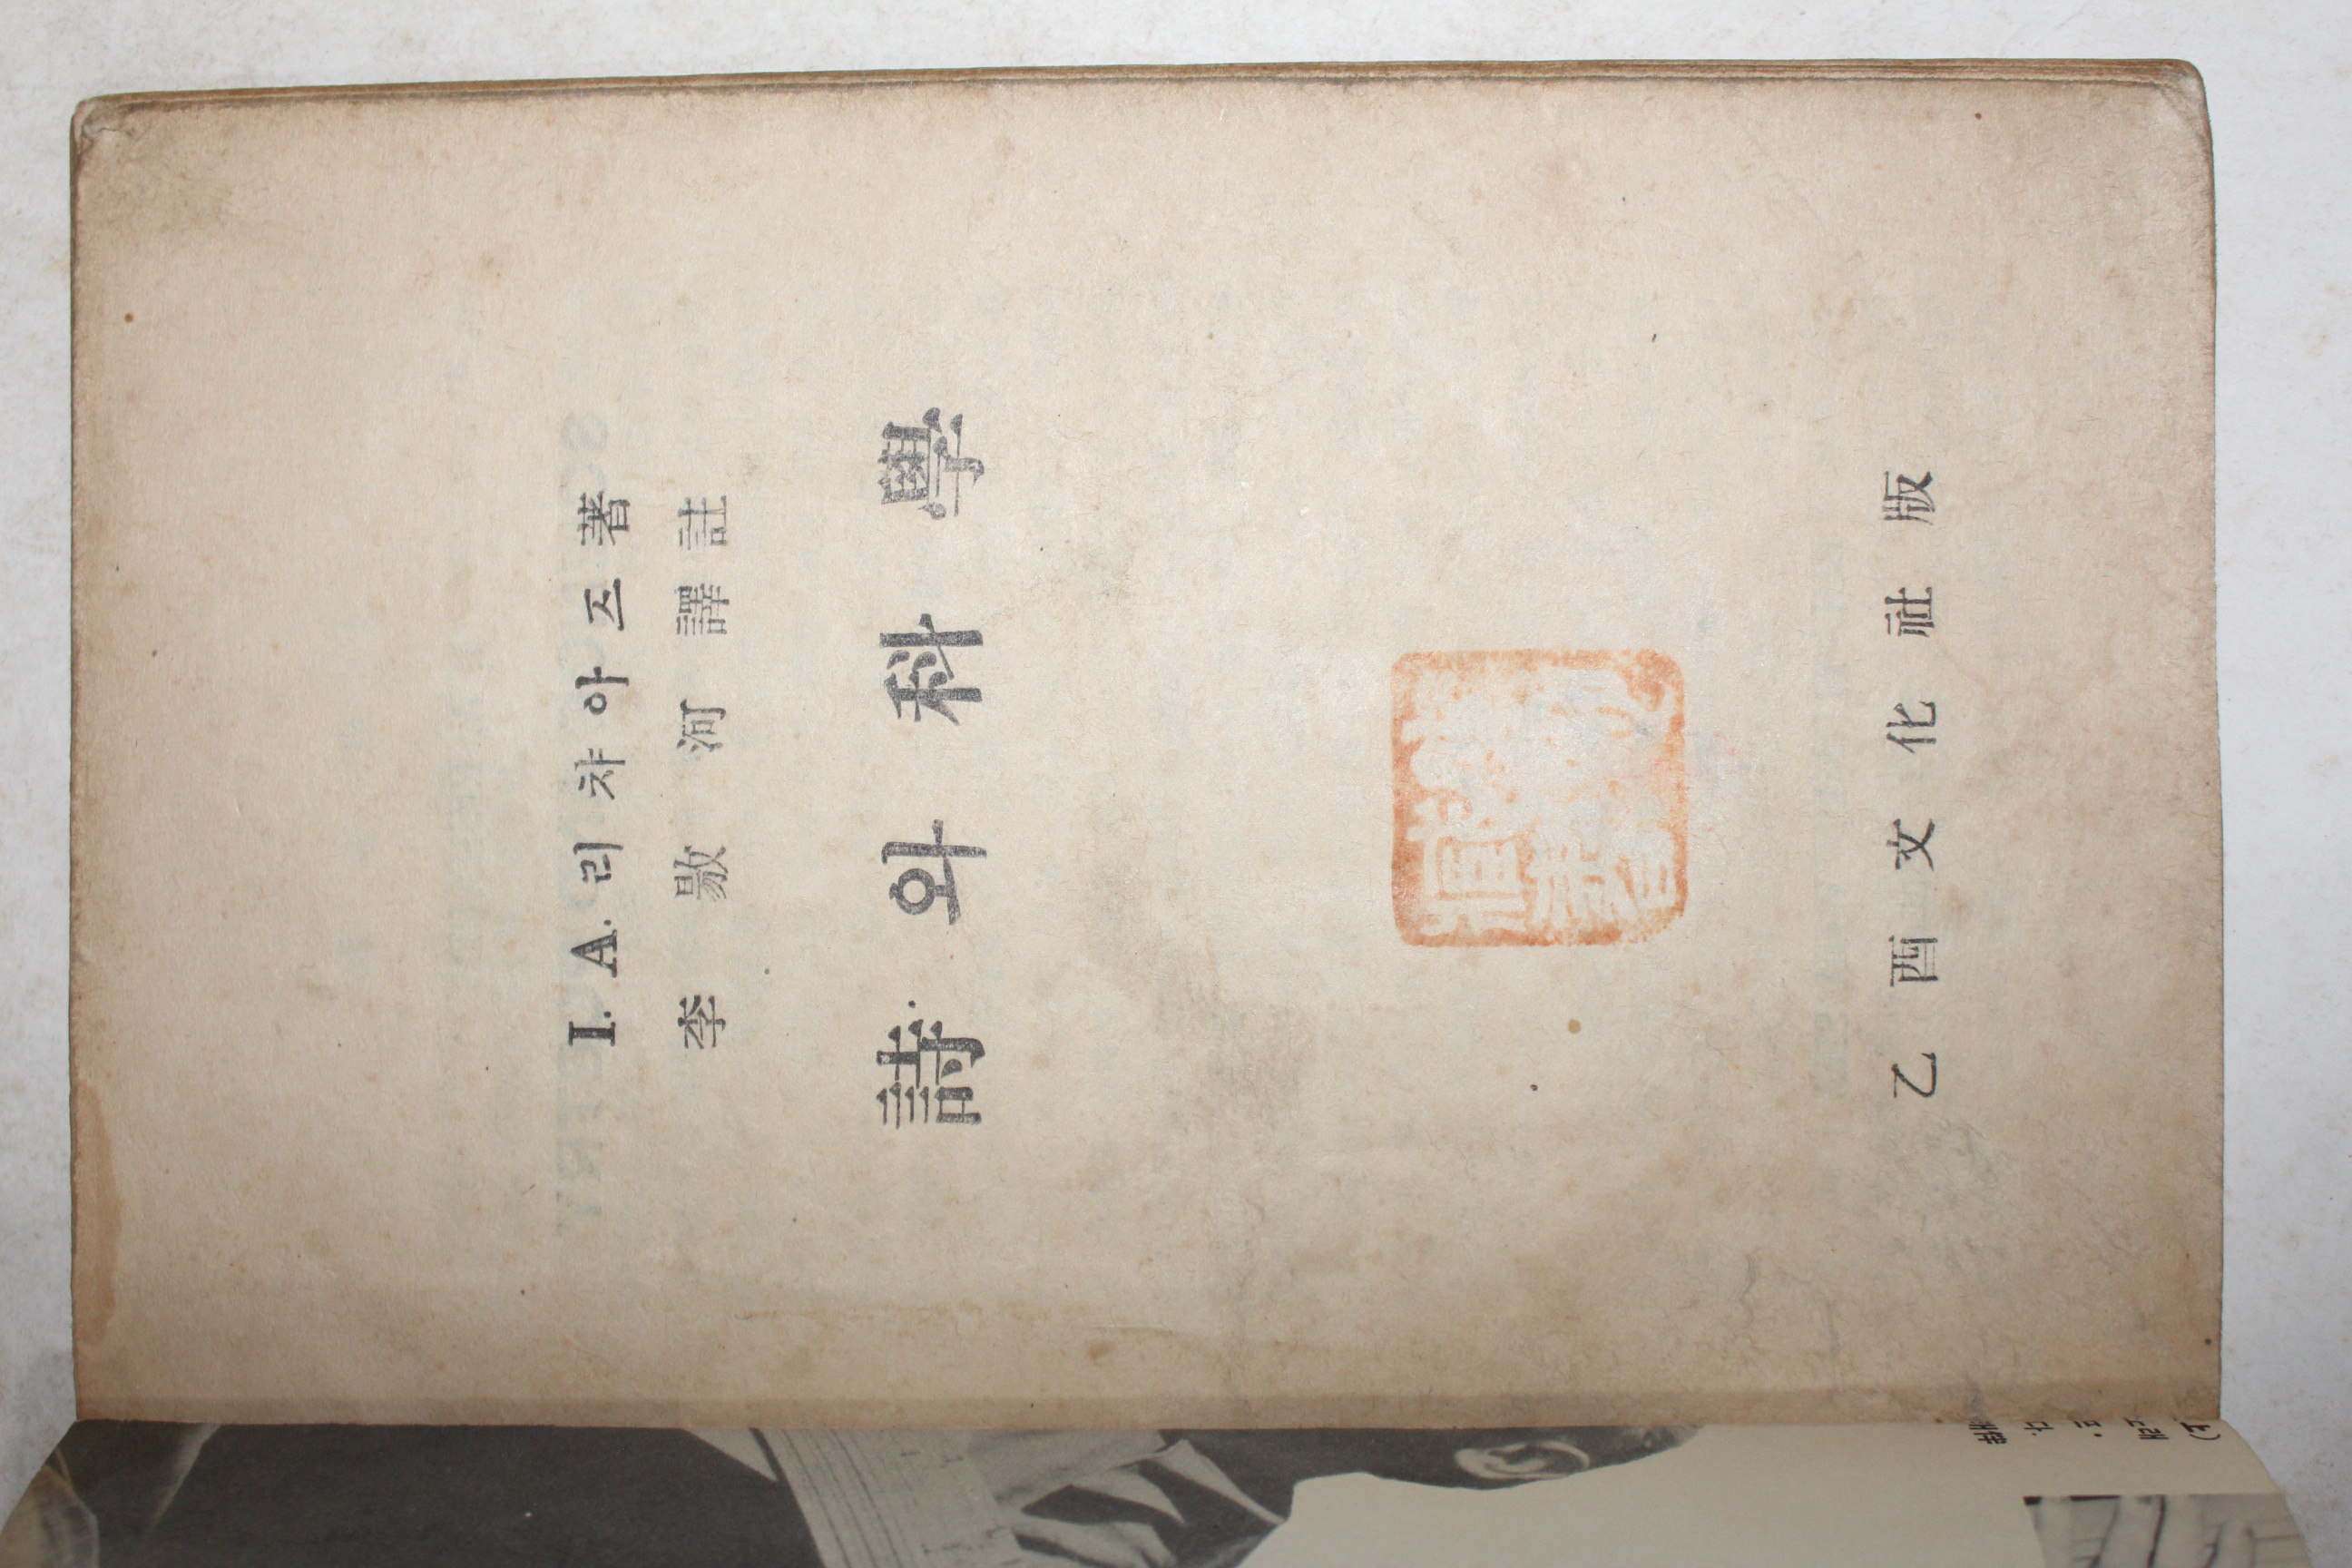 I. A. 리챠아즈 著
李敭河 譯註
詩와 科學
乙酉文化社版